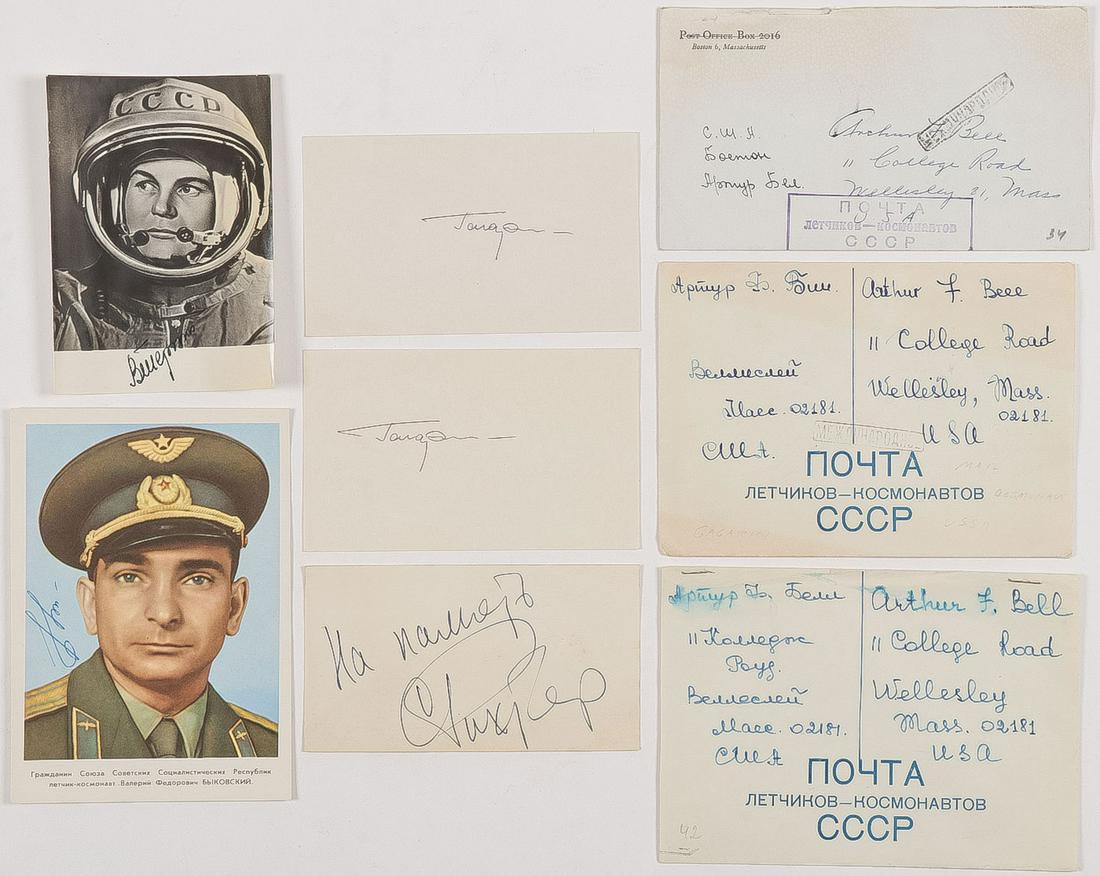 СССР
Гражданин Союза Советских Социалистических Республик
летчик-космонавт Валерий Федорович БЫКОВСКИЙ.
На память
Post Office Box 2016
Boston 6, Massachusetts
США
Бостон
Артур Бел.
Arthur Bell
11 College Road
Wellesley 21, Mass
USA
МЕЖДУНАРОДНОЕ
ПОЧТА
летчиков-космонавтов
СССР
34
Артур Ф. Бил.
Веллеслей
Масс. 02181.
США.
Arthur F. Bell
11 College Road
Wellesley, Mass.
02181.
USA
МЕЖДУНАРОДНОЕ
ПОЧТА
ЛЕТЧИКОВ—КОСМОНАВТОВ
СССР
GAGARIN
MAIL
COSMONAUT
USSR
Артур Ф. Белл
11 Колледж
Роуд.
Веллеслей
Масс. 02181.
США
Arthur F. Bell
11 College Road
Wellesley
Mass. 02181
USA
ПОЧТА
ЛЕТЧИКОВ—КОСМОНАВТОВ
СССР
42